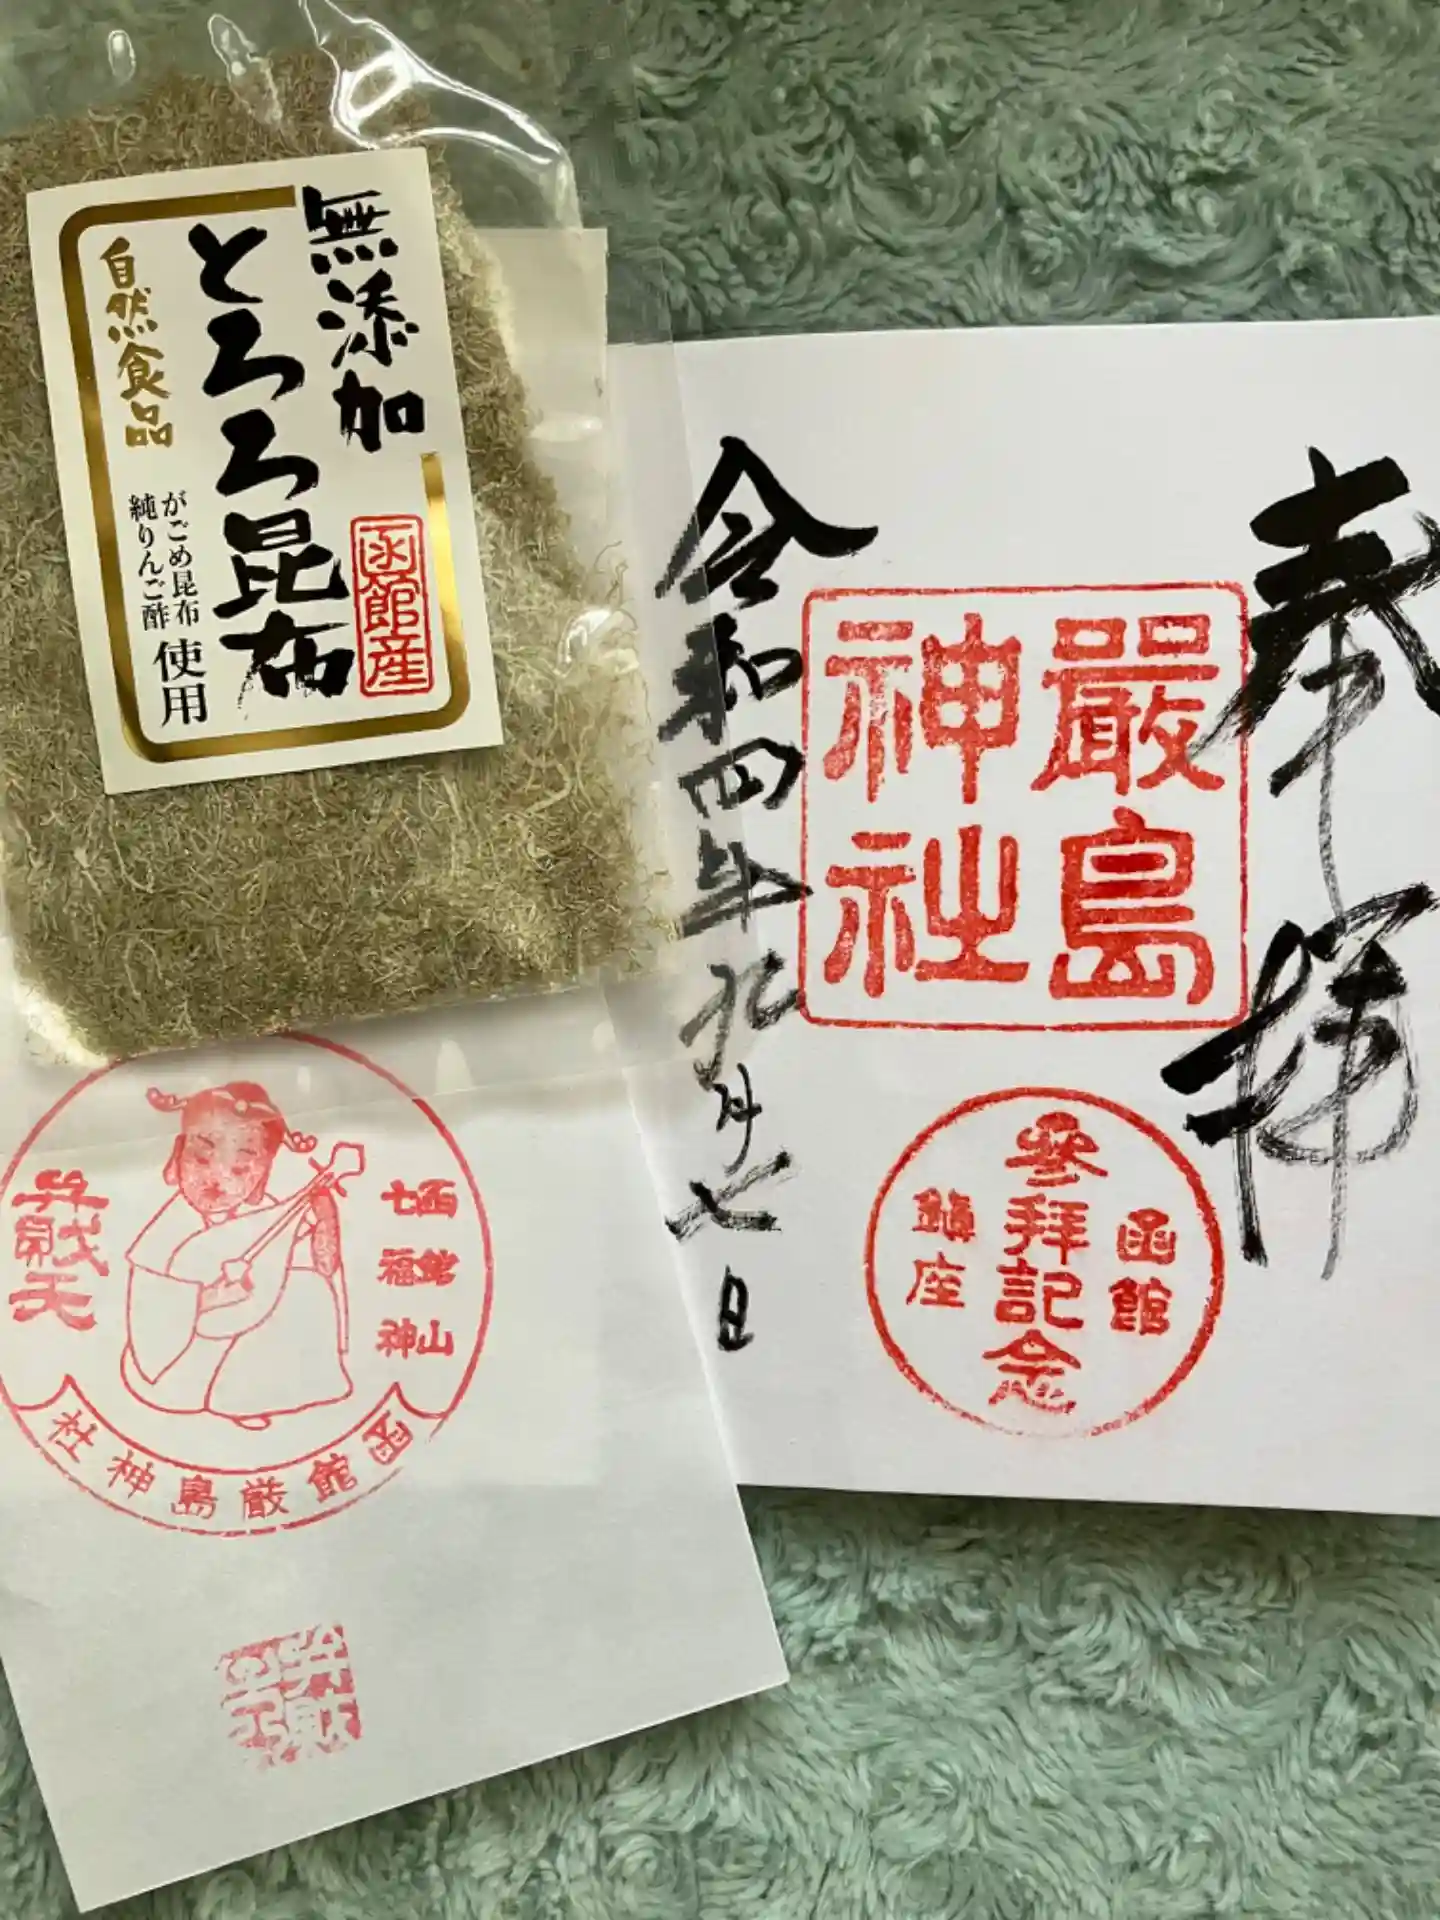 無添加
とろろ昆布
函館産
自然食品
がごめ昆布
純りんご酢
使用
奉拝
嚴島
神社
函館
參拜記念
鎮座
令和四年九月七日
函館山
七福神
弁財天
函館厳島神社